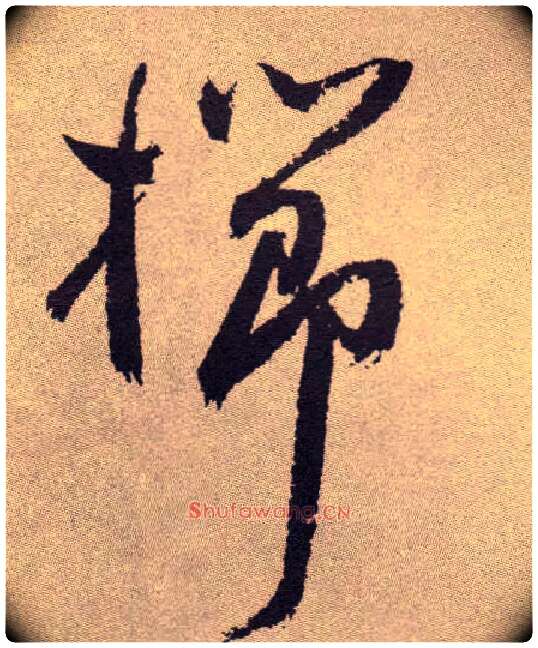 梯
Shufawang.CN